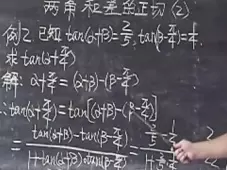 两角和差的正切(2)
例2 已知 tan(α+β)=2/5, tan(β-π/4)=1/4,
求 tan(α+π/4)
解: α+π/4=(α+β)-(β-π/4)
∴tan(α+π/4)=tan[(α+β)-(β-π/4)]
=(tan(α+β)-tan(β-π/4))/(1+tan(α+β)·tan(β-π/4))=